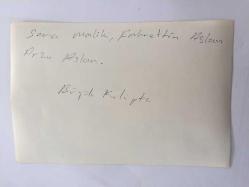 Sara malik, Fahrettin Aslan
Arzu Aslan.
Büyük Kulüpte